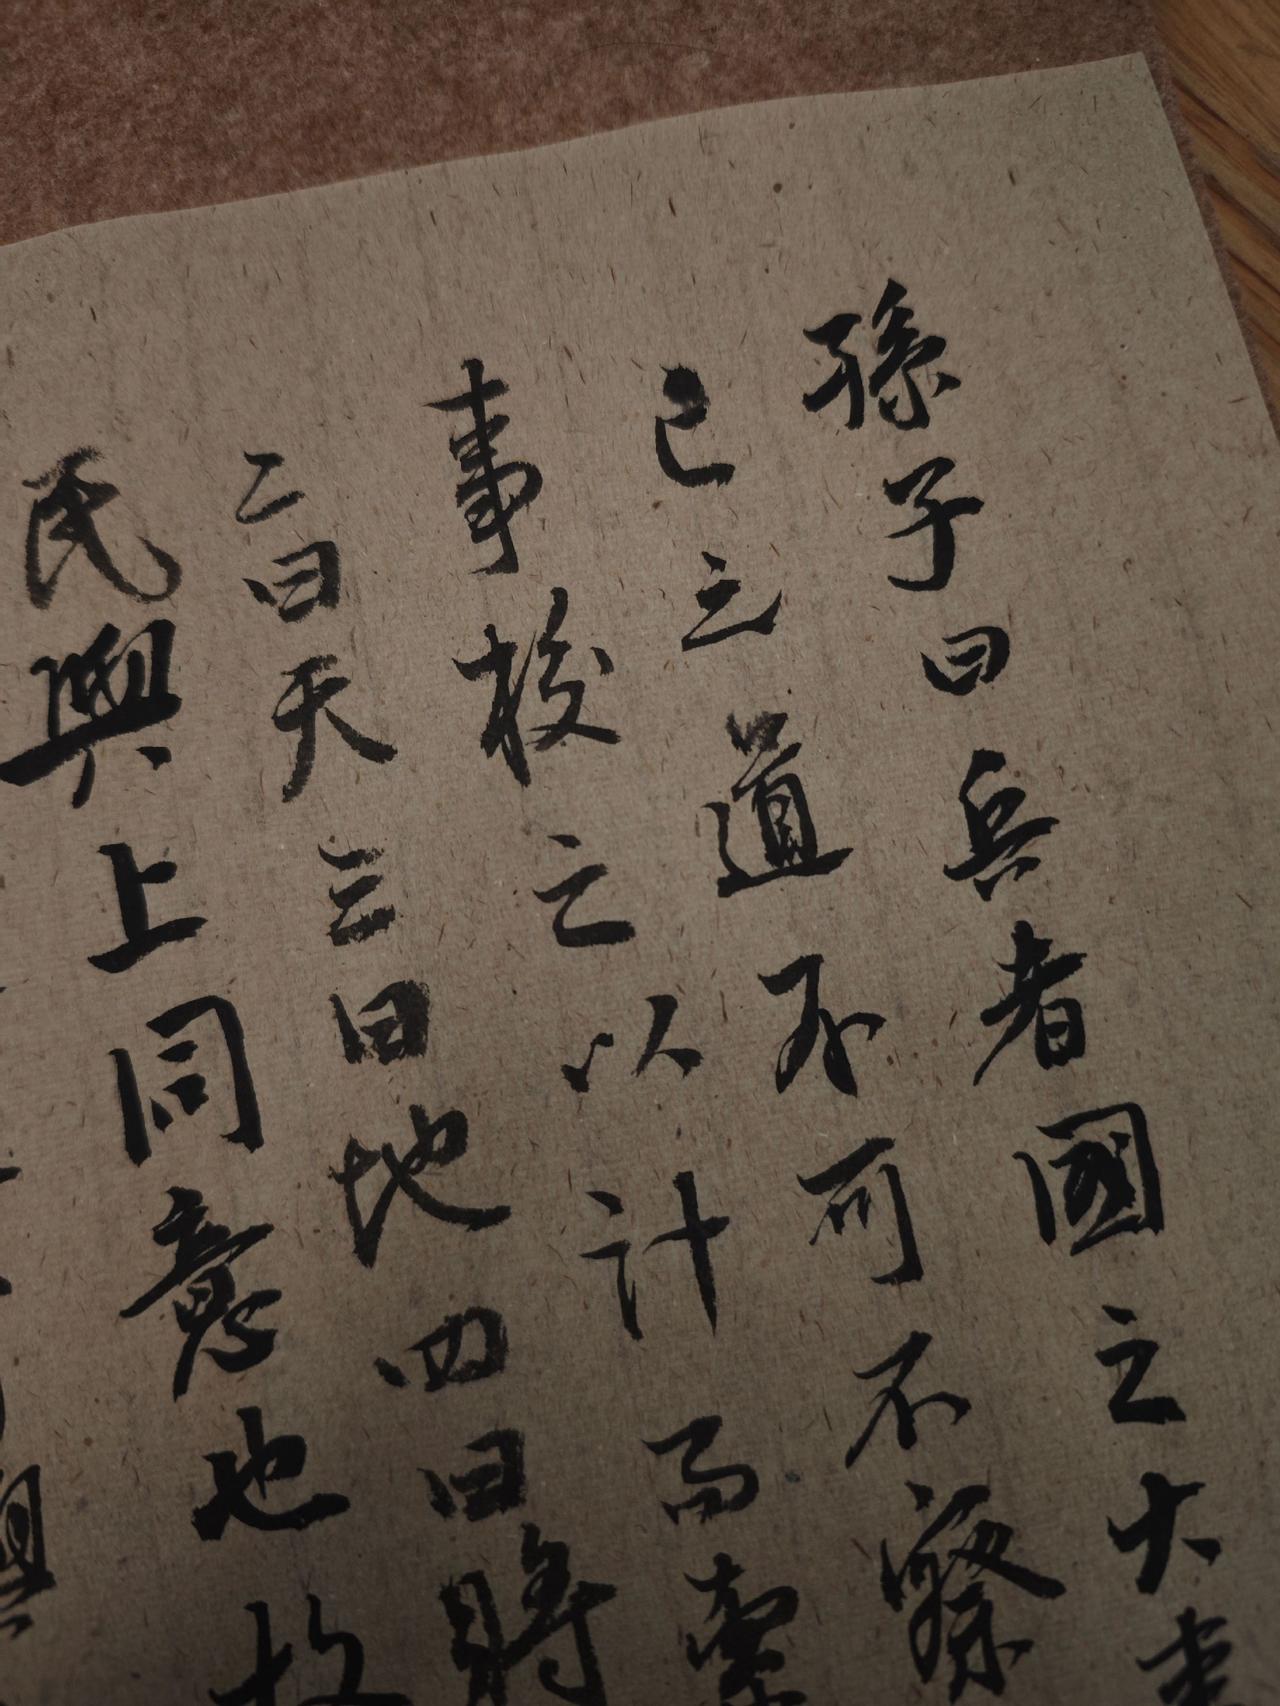 孫子曰兵者國之大事
亡之道不可不察
事校之以計而索
二曰天三曰地四曰將
民與上同意也故
與